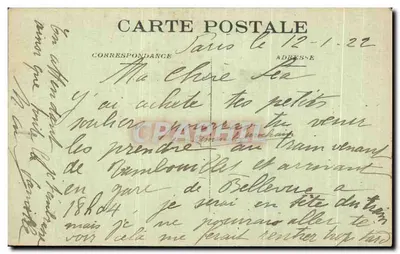 CARTE POSTALE
CORRESPONDANCE
ADRESSE
Paris le 12-1-22
Ma Chère Léa
J'ai acheté tes petits
souliers pourras tu venir
les prendre au train venant
de Rambouillet et arrivant
en gare de Bellevue a
18h04 je serai en tête du train
mais je ne pourrais aller te
voir cela me ferait rentrer trop tard
En attendant je t'embrasse
ainsi que toute la famille